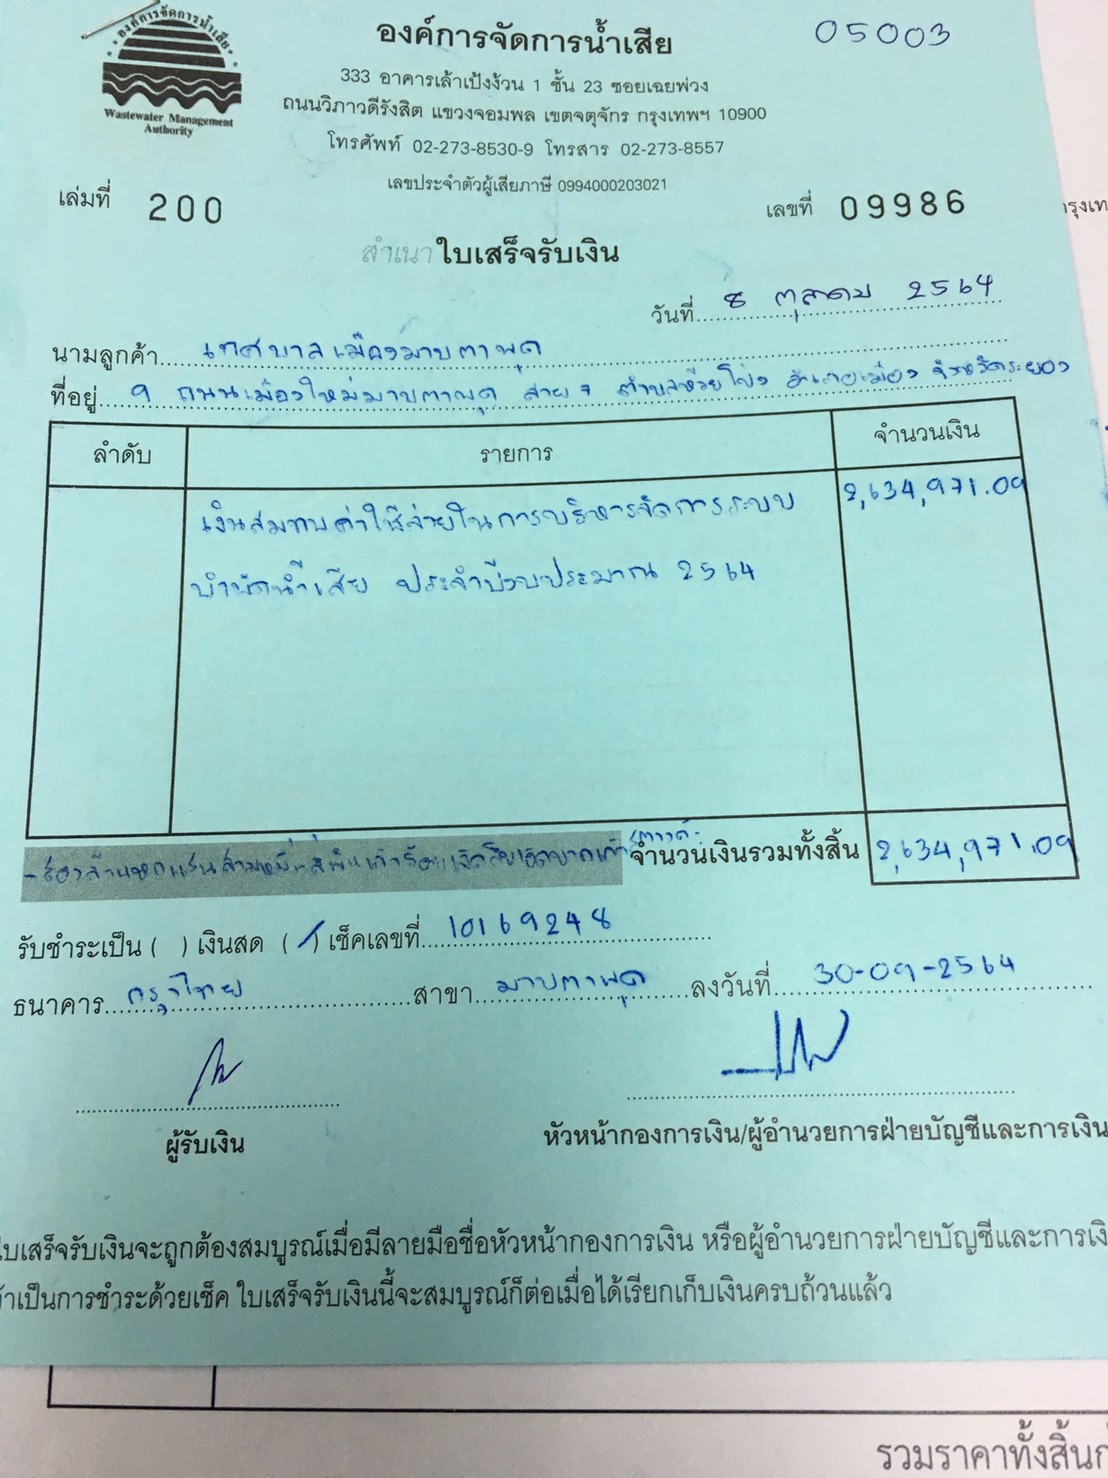 องค์การจัดการน้ำเสีย
05003
333 อาคารเล้าเป้งง้วน 1 ชั้น 23 ซอยเฉยพ่วง
ถนนวิภาวดีรังสิต แขวงจอมพล เขตจตุจักร กรุงเทพฯ 10900
โทรศัพท์ 02-273-8530-9 โทรสาร 02-273-8557
เลขประจำตัวผู้เสียภาษี 0994000203021
องค์การจัดการน้ำเสีย
Wastewater Management
Authority
เล่มที่ 200
เลขที่ 09986
สำเนาใบเสร็จรับเงิน
วันที่ 8 ตุลาคม 2564
นามลูกค้า เทศบาลเมืองมาบตาพุด
ที่อยู่ 9 ถนนเมืองใหม่มาบตาพุด สาย 7 ตำบลห้วยโป่ง อำเภอเมือง จังหวัดระยอง
ลำดับ รายการ จำนวนเงิน
เงินสมทบค่าใช้จ่ายในการบริหารจัดการระบบ 2,634,971.09
บำบัดน้ำเสีย ประจำปีงบประมาณ 2564
-สองล้านหกแสนสามหมื่นสี่พันเก้าร้อยเจ็ดสิบเอ็ดบาทเก้าสตางค์- จำนวนเงินรวมทั้งสิ้น 2,634,971.09
รับชำระเป็น ( ) เงินสด (/) เช็คเลขที่ 10169248
ธนาคาร กรุงไทย สาขา มาบตาพุด ลงวันที่ 30-09-2564
ผู้รับเงิน
หัวหน้ากองการเงิน/ผู้อำนวยการฝ่ายบัญชีและการเงิน
ใบเสร็จรับเงินจะถูกต้องสมบูรณ์เมื่อมีลายมือชื่อหัวหน้ากองการเงิน หรือผู้อำนวยการฝ่ายบัญชีและการเงิ
เป็นการชำระด้วยเช็ค ใบเสร็จรับเงินนี้จะสมบูรณ์ก็ต่อเมื่อได้เรียกเก็บเงินครบถ้วนแล้ว
รวมราคาทั้งสิ้น